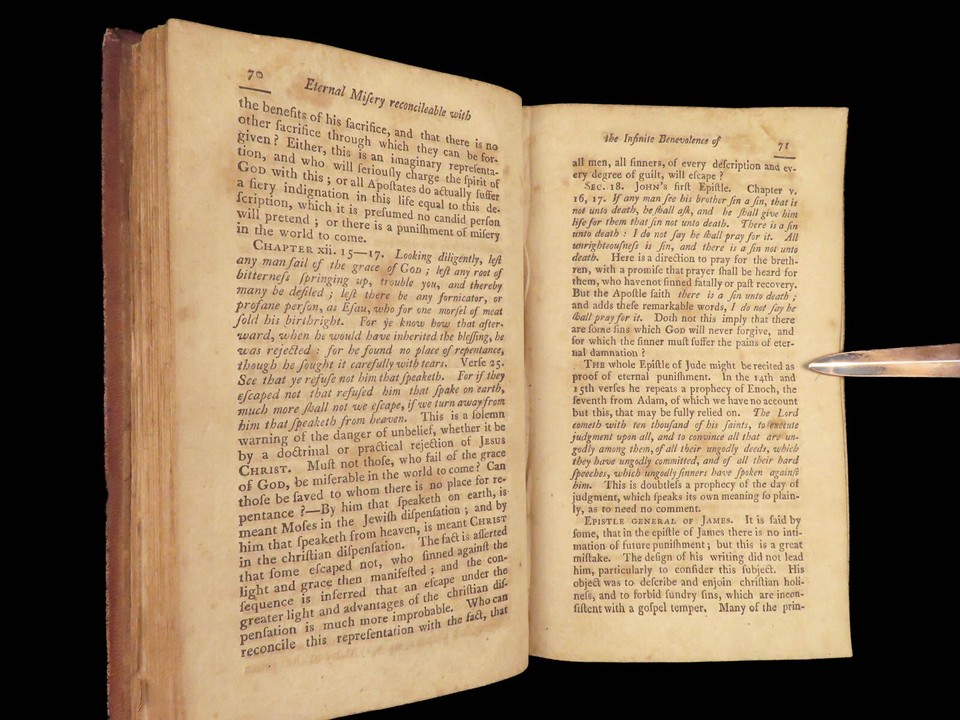 70
Eternal Miſery reconcileable with
the benefits of his ſacrifice, and that there is no
other ſacrifice through which they can be for-
given? Either, this is an imaginary repreſenta-
tion, and who will ſeriouſly charge the ſpirit of
GOD with this; or all Apoſtates do actually ſuffer
a fiery indignation in this life equal to this de-
ſcription, which it is preſumed no candid perſon
will pretend; or there is a puniſhment of miſery
in the world to come.
CHAPTER xii. 15—17. Looking diligently, leſt
any man fail of the grace of GOD; leſt any root of
bitterneſs ſpringing up, trouble you, and thereby
many be defiled; leſt there be any fornicator, or
profane perſon, as Eſau, who for one morſel of meat
ſold his birthright. For ye know how that after-
ward, when he would have inherited the bleſſing, he
was rejected: for he found no place of repentance,
though he ſought it carefully with tears. Verſe 25.
See that ye refuſe not him that ſpeaketh. For if they
eſcaped not that refuſed him that ſpake on earth,
much more ſhall not we eſcape, if we turn away from
him that ſpeaketh from heaven. This is a ſolemn
warning of the danger of unbelief, whether it be
by a doctrinal or practical rejection of JESUS
CHRIST. Muſt not thoſe, who fail of the grace
of GOD, be miſerable in the world to come? Can
thoſe be ſaved to whom there is no place for re-
pentance?—By him that ſpeaketh on earth, is
meant Moſes in the Jewiſh diſpenſation; and by
him that ſpeaketh from heaven, is meant CHRIST
in the chriſtian diſpenſation. The fact is aſſerted
that ſome eſcaped not, who ſinned againſt the
light and grace then manifeſted; and the con-
ſequence is inferred that an eſcape under the
greater light and advantages of the chriſtian diſ-
penſation is much more improbable. Who can
reconcile this repreſentation with the fact, that
the Infinite Benevolence of
71
all men, all ſinners, of every deſcription and ev-
ery degree of guilt, will eſcape?
SEC. 18. JOHN'S firſt Epiſtle. Chapter v.
16, 17. If any man ſee his brother ſin a ſin, that is
not unto death, he ſhall aſk, and he ſhall give him
life for them that ſin not unto death. There is a ſin
unto death: I do not ſay he ſhall pray for it. All
unrighteouſneſs is ſin, and there is a ſin not unto
death. Here is a direction to pray for the breth-
ren, with a promiſe that prayer ſhall be heard for
them, who have not ſinned fatally or paſt recovery.
But the Apoſtle ſaith there is a ſin unto death;
and adds theſe remarkable words, I do not ſay he
ſhall pray for it. Doth not this imply that there
are ſome ſins which GOD will never forgive, and
for which the ſinner muſt ſuffer the pains of eter-
nal damnation?
THE whole Epiſtle of Jude might be recited as
proof of eternal puniſhment. In the 14th and
15th verſes he repeats a prophecy of Enoch, the
ſeventh from Adam, of which we have no account
but this, that may be fully relied on. The Lord
cometh with ten thouſand of his ſaints, to execute
judgment upon all, and to convince all that are un-
godly among them, of all their ungodly deeds, which
they have ungodly committed, and of all their hard
ſpeeches, which ungodly ſinners have ſpoken againſt
him. This is doubtleſs a prophecy of the day of
judgment, which ſpeaks its own meaning ſo plain-
ly, as to need no comment.
EPISTLE GENERAL OF JAMES. It is ſaid by
ſome, that in the epiſtle of James there is no inti-
mation of future puniſhment; but this is a great
miſtake. The deſign of his writing did not lead
him, particularly to conſider this ſubject. His
object was to deſcribe and enjoin chriſtian holi-
neſs, and to forbid ſundry ſins, which are incon-
ſiſtent with a goſpel temper. Many of the prin-